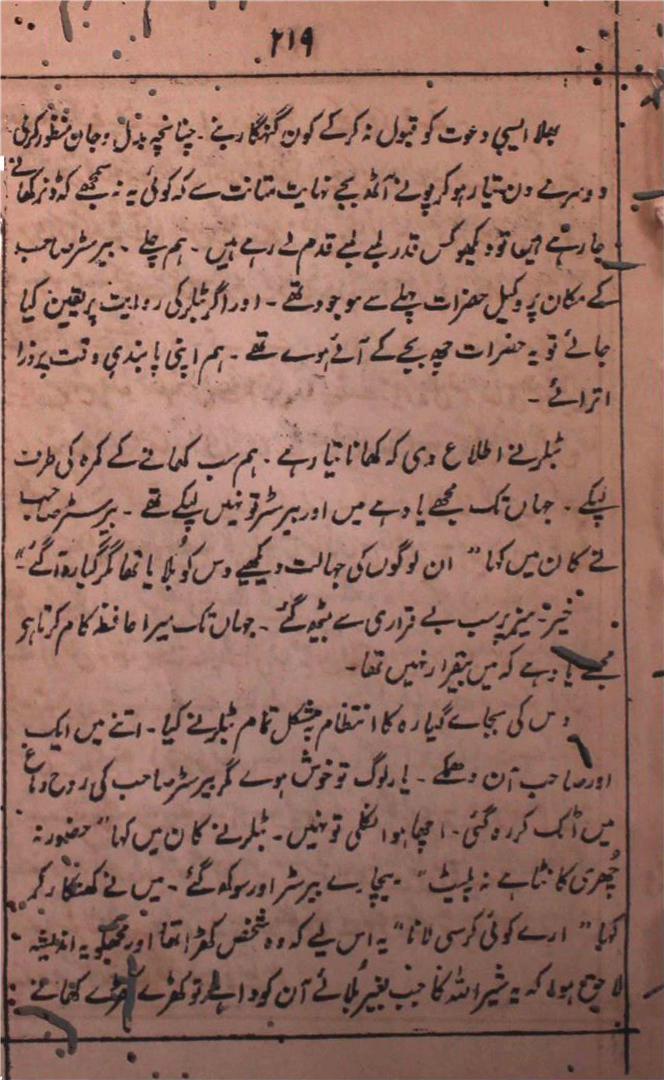 ۲۱۹
بھلا ایسی دعوت کو قبول نہ کرکے کون گنہگار بنے ۔ چنانچہ بدل وجان منظور کرلی
دوسرے دن تیار ہوکر پونے آٹھ بجے نہایت متانت سے کہ کوئی یہ نہ سمجھے کہ ڈنر کھانے
جارہے ہیں تو دیکھو کس قدر لمبے لمبے قدم لے رہے ہیں ۔ ہم چلے ۔ بیرسٹر صاحب
کے مکان پر وکیل حضرات پہلے سے موجود تھے ۔ اور اگر بٹلر کی روایت پر یقین کیا
جائے تو یہ حضرات چھ بجے کے آئے ہوے تھے ۔ ہم اپنی پابندیِ وقت پر ذرا
اترائے ۔
بٹلر نے اطلاع دی کہ کھانا تیار ہے ۔ ہم سب کھانے کے کمرہ کی طرف
لپکے ۔ جہاں تک مجھے یاد ہے میں اور بیرسٹر تو نہیں لپکے تھے ۔ بیرسٹر صاحب
نے کان میں کہا " ان لوگوں کی جہالت دیکھیے دس کو بلایا تھا مگر گیارہ آگئے "
خیر ۔ میز پر سب بے قراری سے بیٹھ گئے ۔ جہاں تک میرا حافظہ کام کرتا ہو
مجھے یاد ہے کہ میں بیقرار نہیں تھا ۔
دس کی بجاے گیارہ کا انتظام بمشکل تمام بٹلر نے کیا ۔ اتنے میں ایک
اور صاحب آن دھمکے ۔ یار لوگ تو خوش ہوے مگر بیرسٹر صاحب کی روح دماغ
میں اٹک کر رہ گئی ۔ اچھا ہوا نکلی تو نہیں ۔ بٹلر نے کان میں کہا " حضور نہ
چُھری کانٹا ہے نہ پلیٹ " بیچارے بیرسٹر اور سوکھ گئے ۔ میں نے کھنکار کر
کہا " ارے کوئی کرسی لانا " یہ اس لیے کہ وہ شخص کھڑا تھا اور مجھکو یہ اندیشہ
لاحق ہوا کہ یہ شیر اللہ کا جب بغیر بُلائے آن کودا ہے تو کھڑے کھڑے کھانے